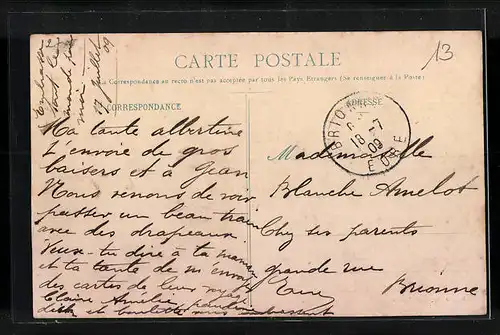 17 Juillet 09
CARTE POSTALE
La Correspondance au recto n'est pas acceptée par tous les Pays Etrangers (Se renseigner à la Poste)
13
CORRESPONDANCE
ADRESSE
18 -7
09
EURE
Ma tante albertine
t'envoie de gros
baisers et a Jean
Nous venons de voir
passer un beau train
avec des drapeaux
Veux-tu dire à ta maman
et ta tante de m'envoyer
des cartes de leur
Claire Amélie
et
Mademoiselle
Blanche Amelot
Chez ses parents
grande rue
Eure Brionne